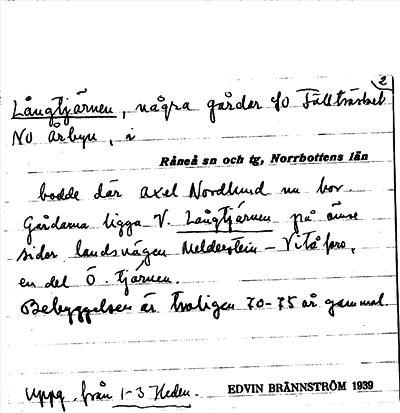 2
Långtjärnen, några gårder SO Fällträsket
NO Årbyn, i
Råneå sn och tg, Norrbottens län
bodde där Axel Nordlund nu bor.
Gårdarna ligga V. Långtjärnen på ömse
sidor landsvägen Melderstein - Vitåfors,
en del Ö. tjärnen.
Bebyggelsen är troligen 70-75 år gammal.
Uppg. från 1-3 Heden. EDVIN BRÄNNSTRÖM 1939